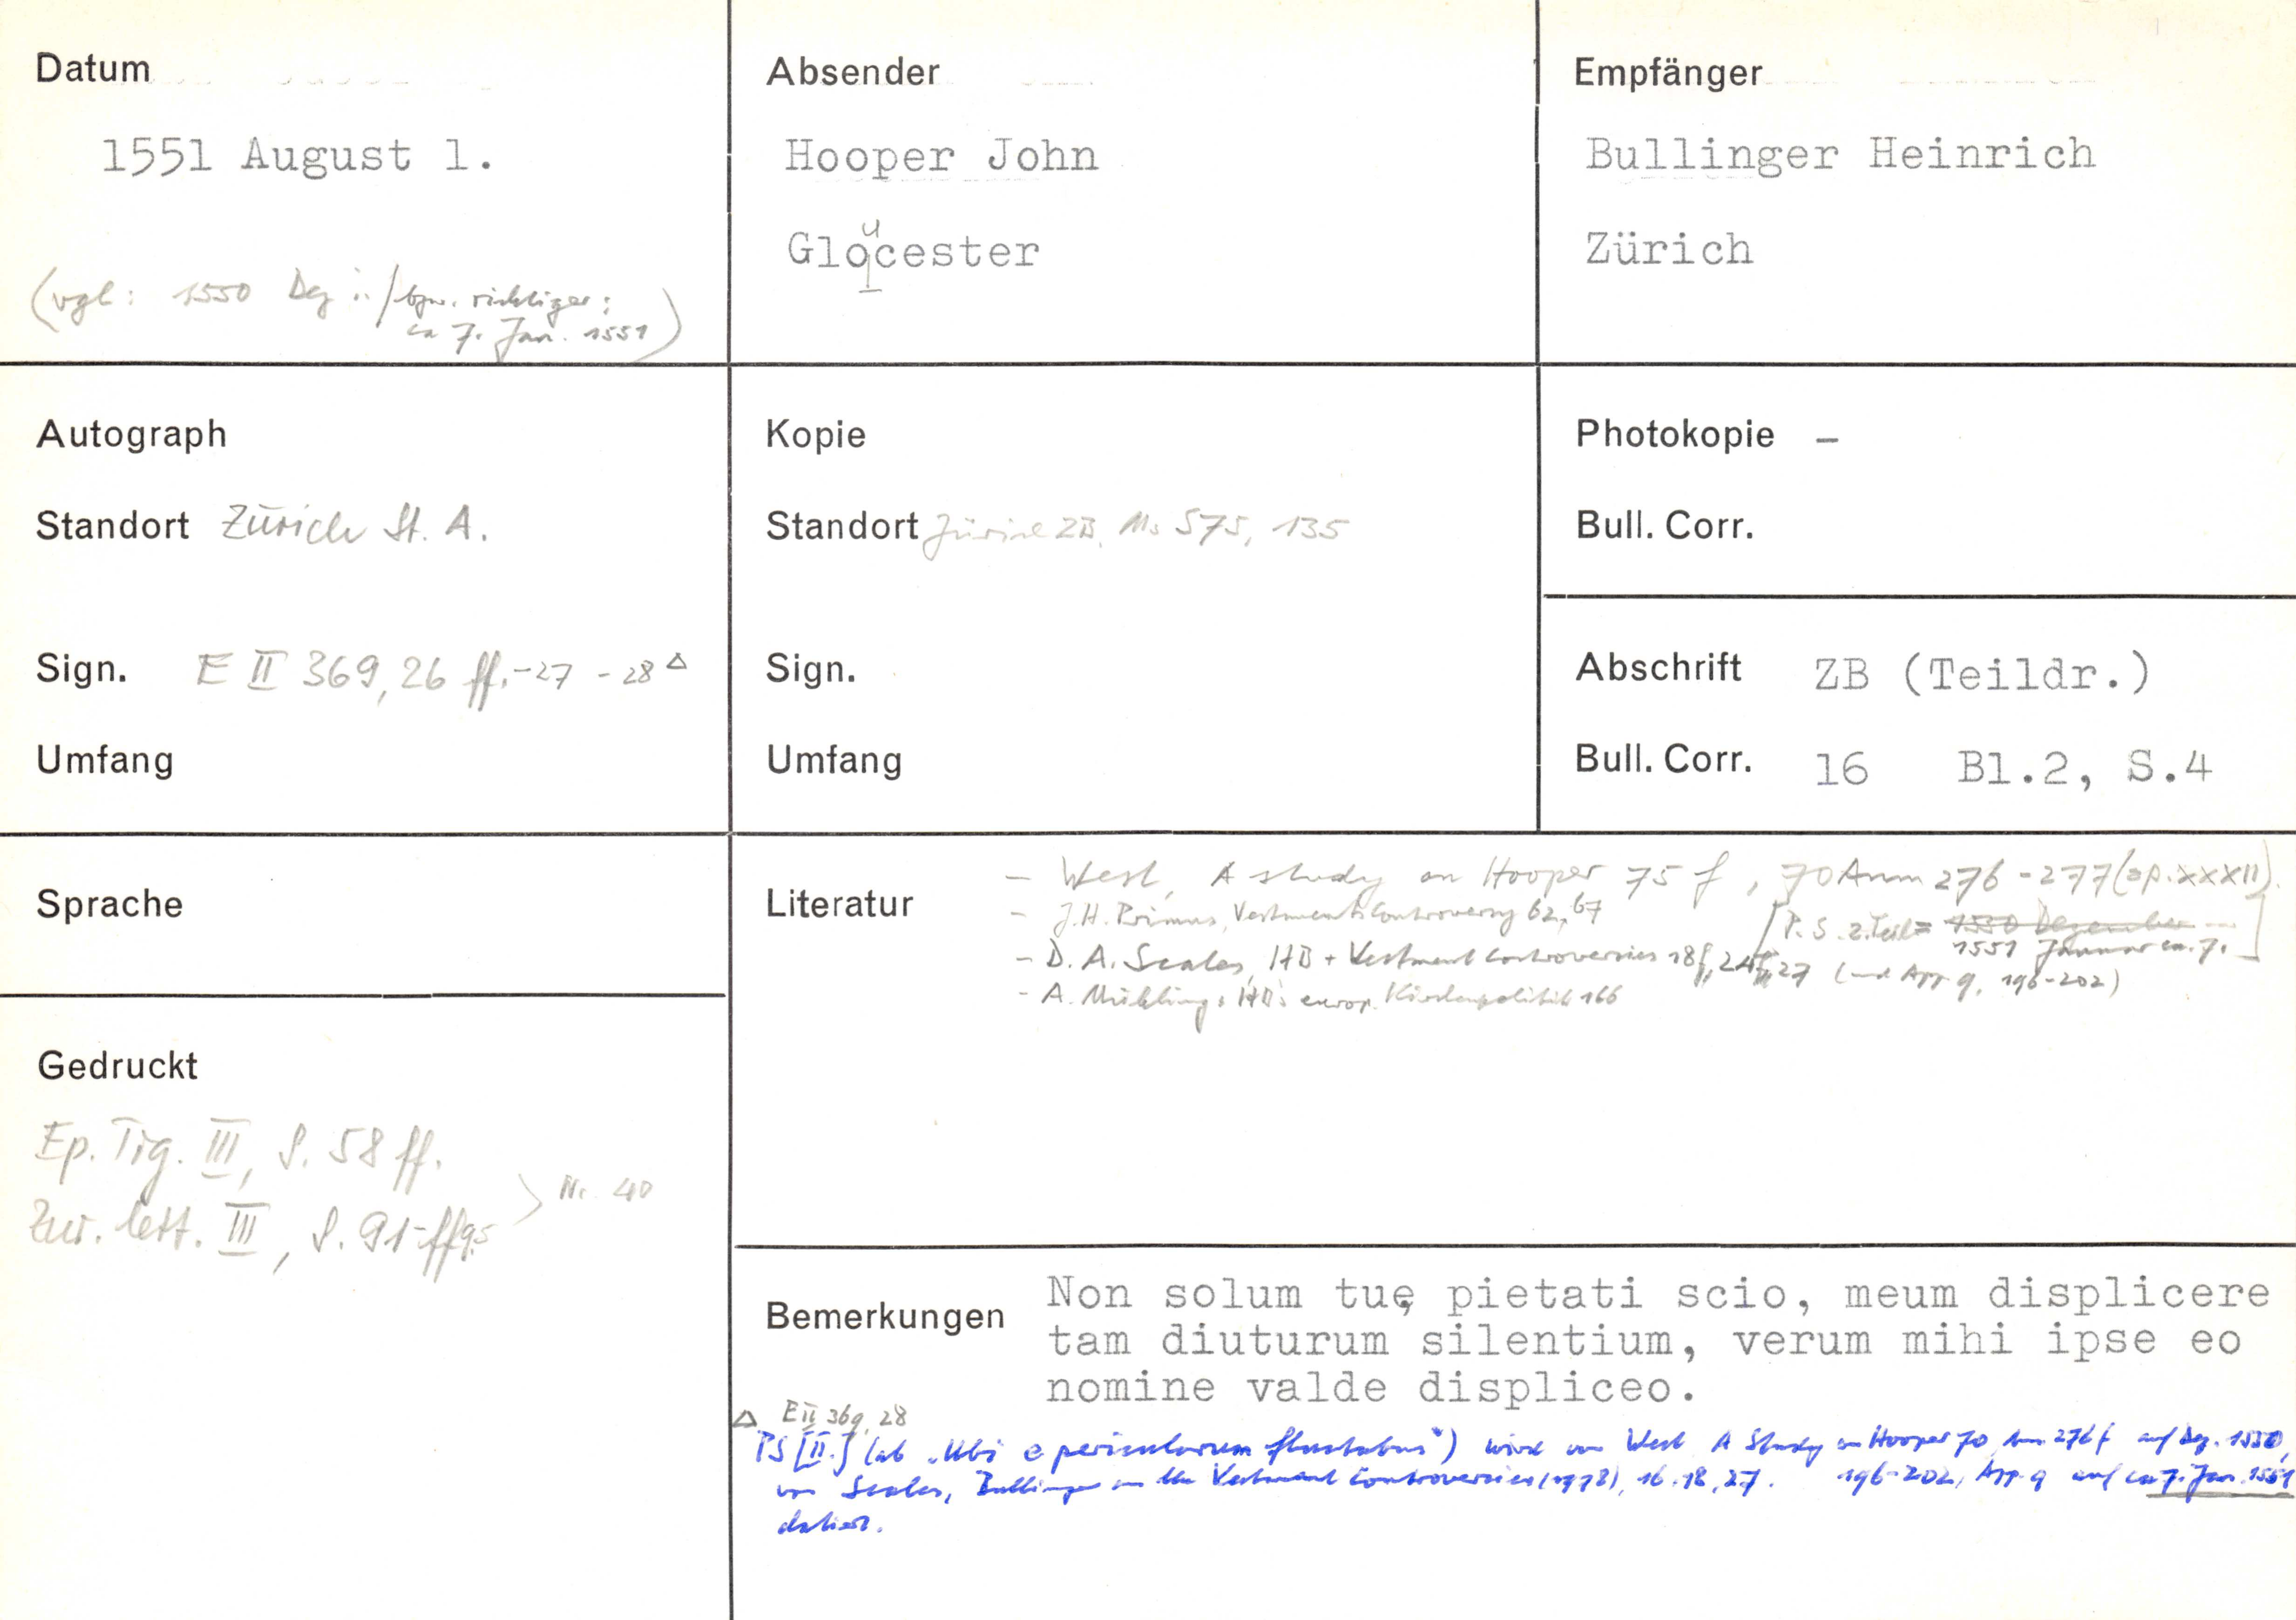 Datum
1551 August 1.
(vgl: 1550 Dez ../bzw. richtiger:
ca 7. Jan. 1551)
Absender
Hooper John
Gloucester
Empfänger
Bullinger Heinrich
Zürich
Autograph
Standort Zürich St. A.
Sign. E II 369,26 ff.-27 - 28 Δ
Umfang
Kopie
Standort Zürich ZB, Ms S 75, 135
Sign.
Umfang
Photokopie -
Bull. Corr.
Abschrift ZB (Teildr.)
Bull. Corr. 16 Bl.2, S.4
Sprache
Gedruckt
Ep. Tig. III, S. 58 ff.
Zur. lett. III, S. 91-ff95
> Nr. 40
Literatur
- West, A study on Hooper 75 f, 70 Anm 276-277 (ap. XXXII).
- J.H. Primus, Vestments Controversy 62, 67
[P.S. 2. Teil = 1550 Dezember
1551 Januar ca. 7.]
- D. A. Scales, HB + Vestment Controversies 18f, 24f, 27 (und App. 9, 196-202)
- A. Mühling, HB's europ. Kirchenpolitik 166
Bemerkungen
Non solum tuę pietati scio, meum displicere
tam diuturum silentium, verum mihi ipse eo
nomine valde displiceo.
Δ E II 369, 28
PS [II.] (ab „Ubi e periculorum fluctubus") wird von West A Study on Hooper 70 Anm 276 f auf Dez. 1550,
von Scales, Bullinger on the Vestment Controversies (1978), 16.18,27. 196-202, App. 9 auf ca 7. Jan. 1551
datiert.